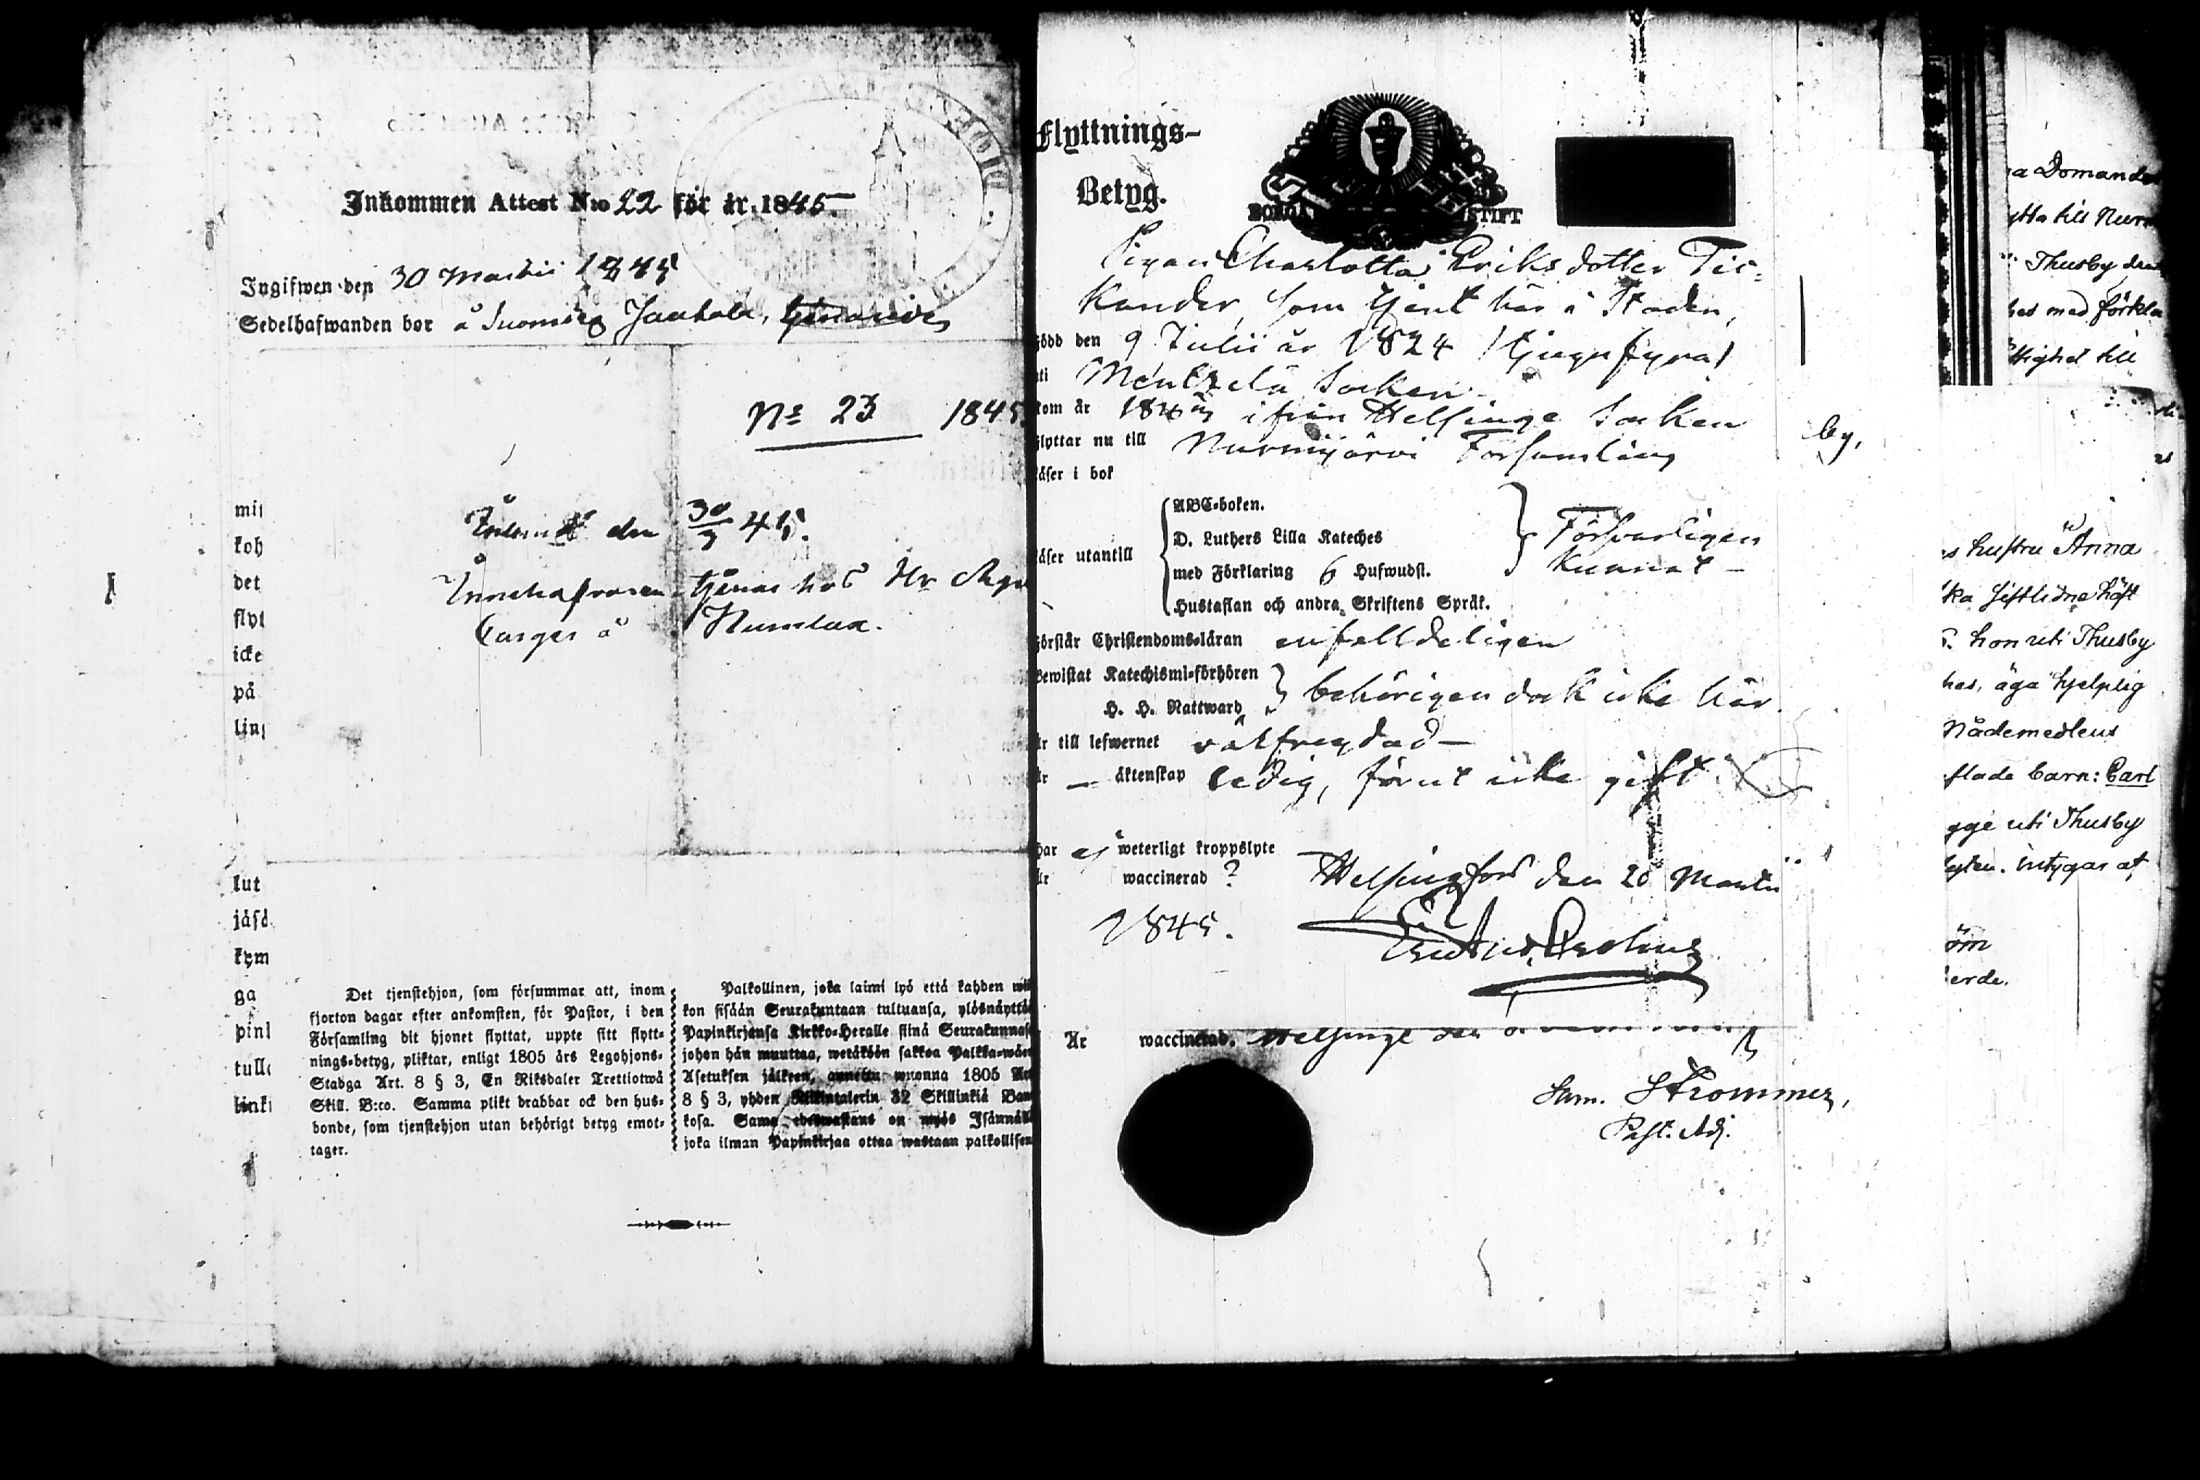 Inkommen Attest N:o 22 för år 1845.
Ingifwen den 30 Martii 1845
Sedelhafwanden bor å Suomies Jaakola,
N° 23 1845
den 30/3 45.
Innehafvaren tjenar hos Hr
å Numlax.
mi
koh
det
flyt
icke
på
lin
lut
jäsä
kym
ga
pinl
tull
link
Det tjenstehjon, som försummar att, inom
fjorton dagar efter ankomsten, för Pastor, i den
Församling dit hjonet flyttat, uppte sitt flytt-
nings-betyg, pliktar, enligt 1805 års Legohjons-
Stadga Art. 8 § 3, En Riksdaler Trettiotwå
Skill. B:co. Samma plikt drabbar ock den hus-
bonde, som tjenstehjon utan behörigt betyg emot-
tager.
Palkollinen, joka laimi lyö että kahden wii
kon sisään Seurakuntaan tultuansa, ylösnäyttä
Papinkirjansa Kirkko-Heralle siinä Seurakunnas
johon hän muuttaa, wetäköön sakkoa Palkka-wäen
Asetuksen jälkeen, annettu wuonna 1805 Ar
8 § 3, yhden Riikintalerin 32 Skillinkiä Ban
kosa. Sama edeswastaus on myös Isännällä
joka ilman Papinkirjaa ottaa wastaan palkollisen
Flyttnings-
Betyg.
BORGÅ STIFT
Pigan Charlotta Eriksdotter Tic-
kander, som tjent här i Staden,
född den 9 Julii år 1824 /tjugufyra/
uti Mentzelä Socken
kom år 1843 ifrån Helsinge Socken
flyttar nu till Nurmijärvi Församling
läser i bok
läser utantill
ABC-boken.
D. Luthers Lilla Kateches
med Förklaring 6 Hufwudst.
Hustaflan och andra Skriftens Språk.
Försvarligen
kunnat –
förstår Christendoms-läran enfalldeligen
Bewistat Katechismi-förhören
H. H. Nattward
behörigen dock icke här.
är till lefwernet välfreydad –
är – äktenskap ledig, förut icke gift
har ej weterligt kroppslyte
är waccinerad ?
Helsingfors den 28 Martii
1845.
Är waccinerad. Helsinge den
Sam. Strommer,
Past. Adj.
by,
a Domander
ytta till Nurm
Thusby
hes med förkla
ttighet till
s hustru Anna
hon uti Thusby
hes, äga hjelplig
Nådemedlens
flade barn: Carl
gge uti Thusby
lyten. intygar af
öm
erde.